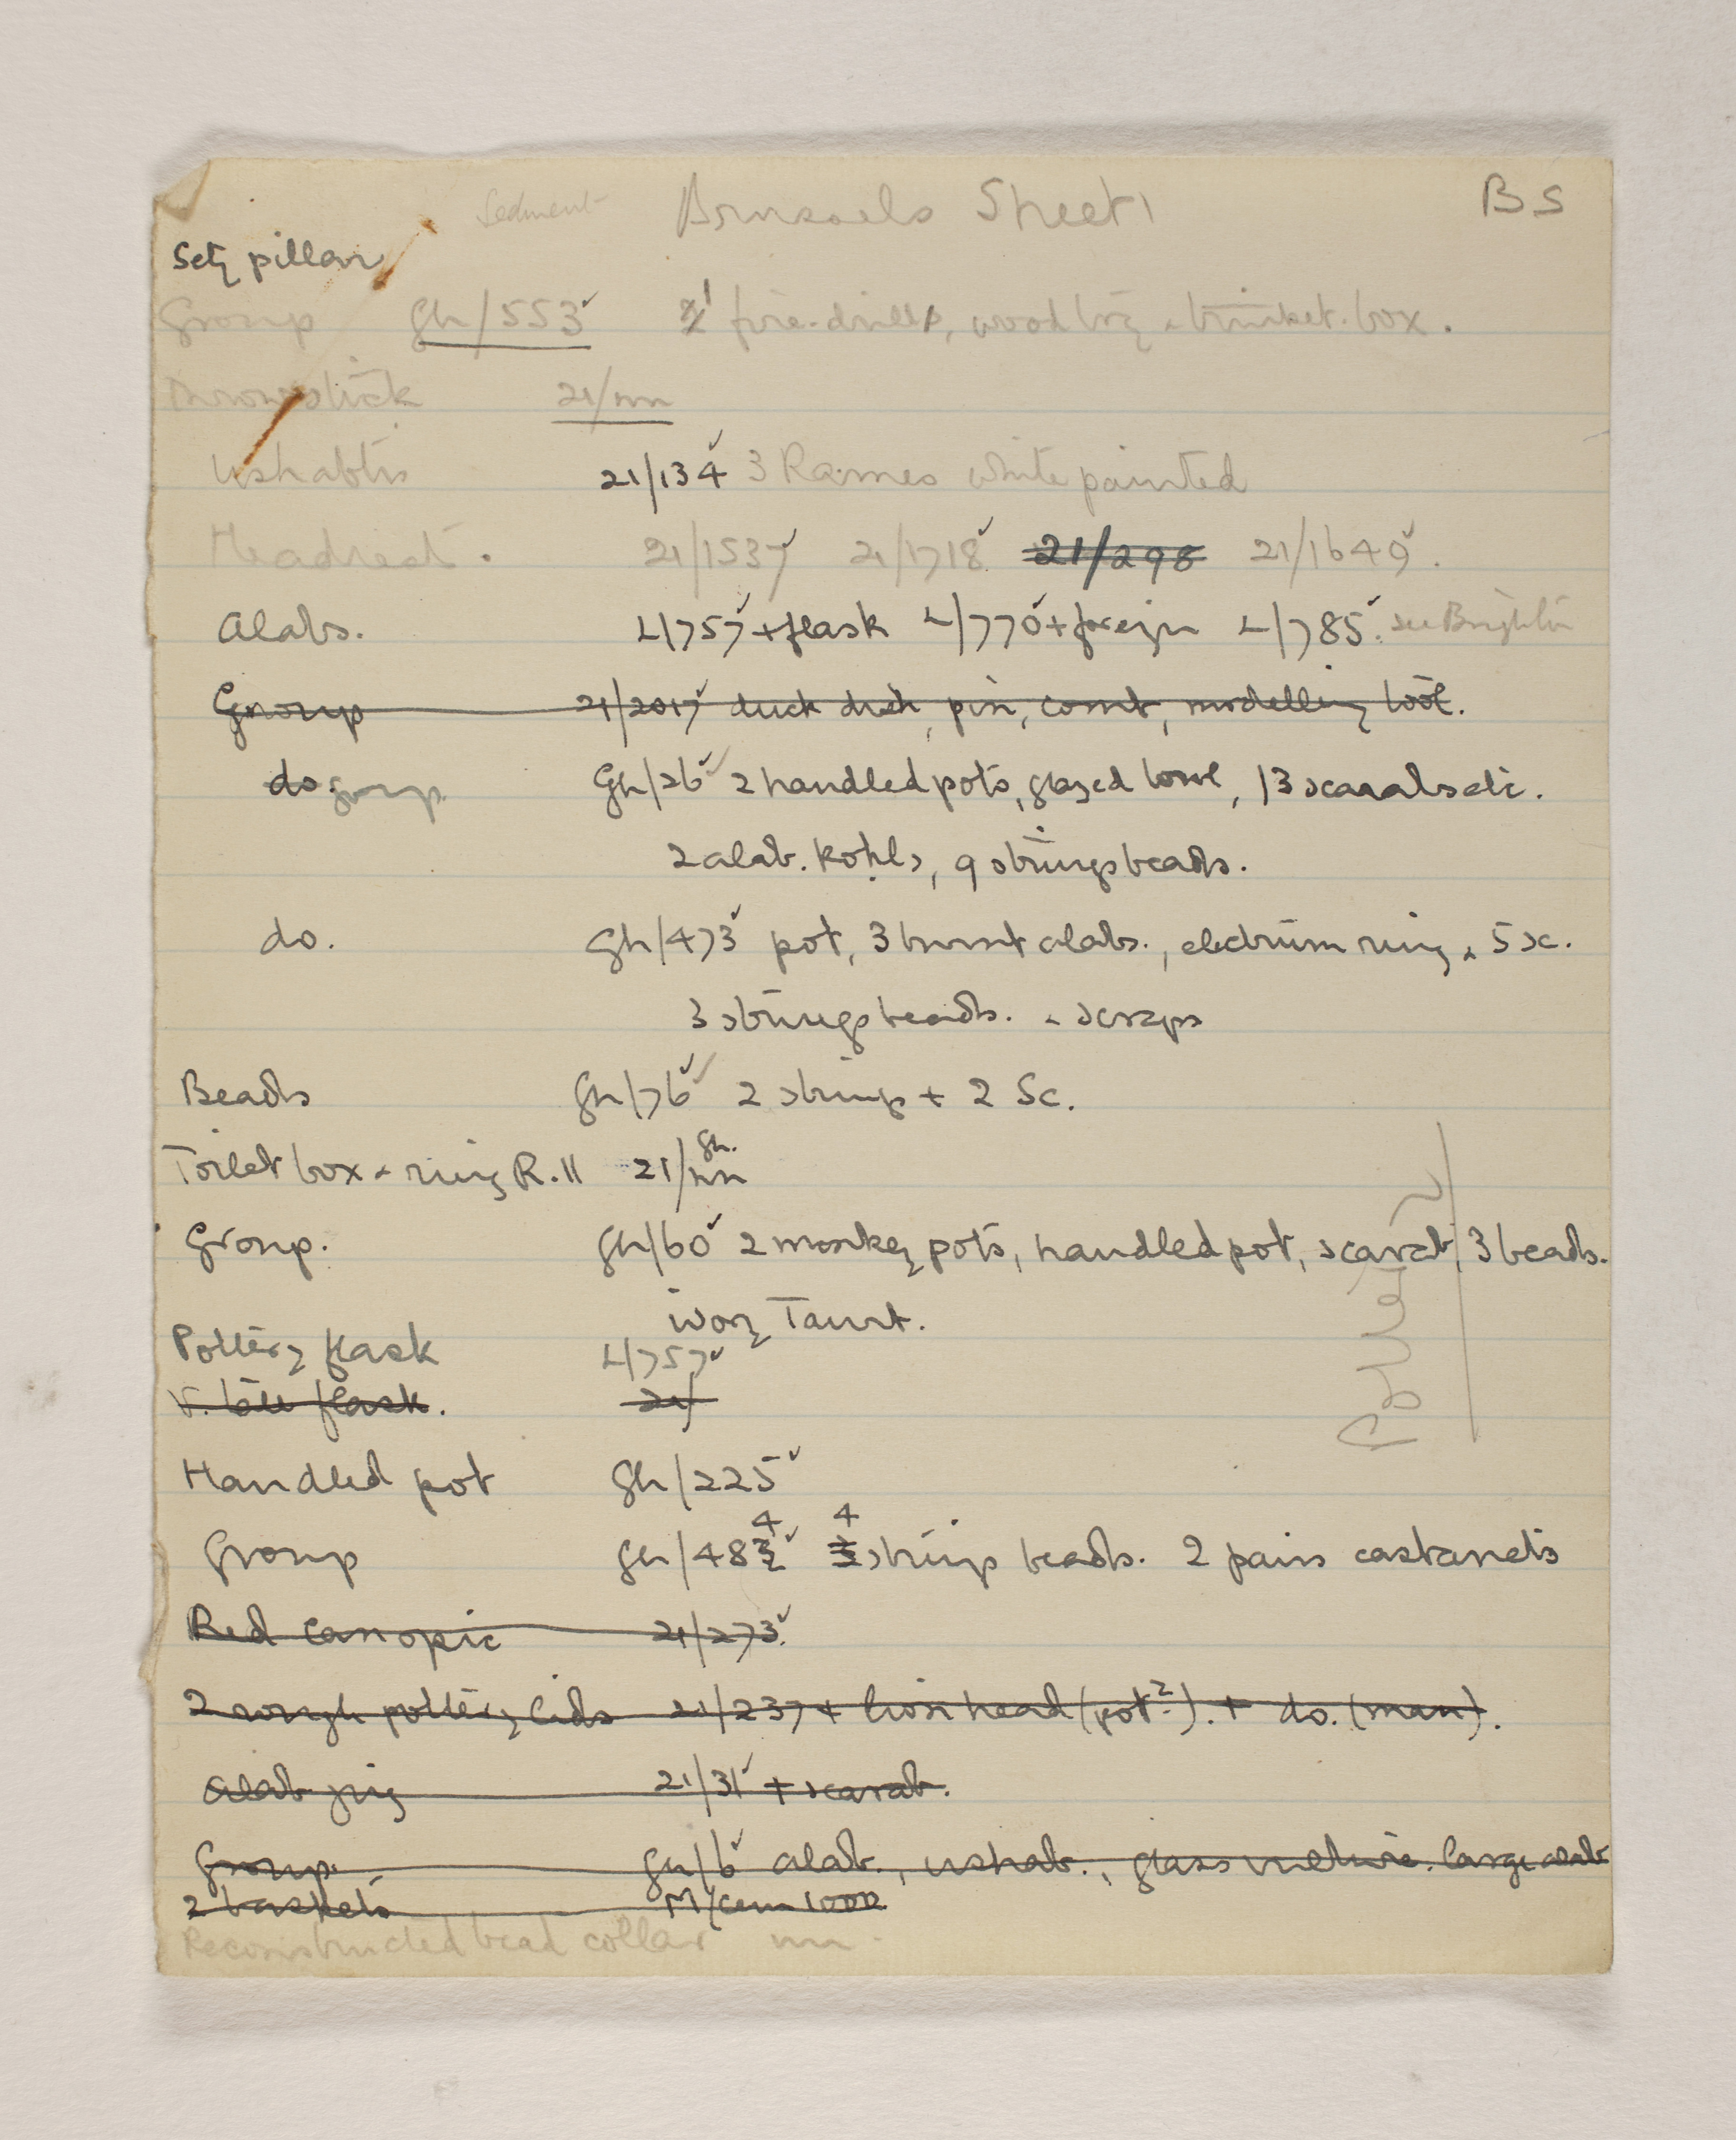 Sedment Brussels Sheet 1 BS
Sety pillar
Group Gh/553 1 fire-drill, wood key & trinket-box.
Throwstick 21/nn
Ushabtis 21/134 3 Rames white painted
Headrest. 21/1537 21/1718 21/298 21/1649.
Alabs. L/757 + flask L/770 + foreign L/785. see Brighton
Group 21/2017 duck dish, pin, comb, modelling tool.
do. group Gh/26 2 handled pots, glazed bowl, 13 scarabs etc.
2 alab. kohls, 9 strings beads.
do. Gh/473 pot, 3 burnt alabs., electrum ring, & 5 sc.
3 strings beads. & scraps
Beads Gh/76 2 strings + 2 Sc.
Toilet box & ring R.II 21/nn Gh.
Group. Gh/60 2 monkey pots, handled pot, scarab, 3 beads.
ivory Taurt.
Pottery flask L/757
V. late flask. 21/
Handled pot Gh/225
Group Gh/484 4 strings beads. 2 pairs castanets
Red canopic 21/273.
2 rough pottery lids 21/237 + lion head (pot?). + do. (man).
Alab jug 21/31 + scarab.
Group. Gh/6 alab., ushab., glass large alab
2 baskets M/Cem 1000
Reconstructed bead collar nn.